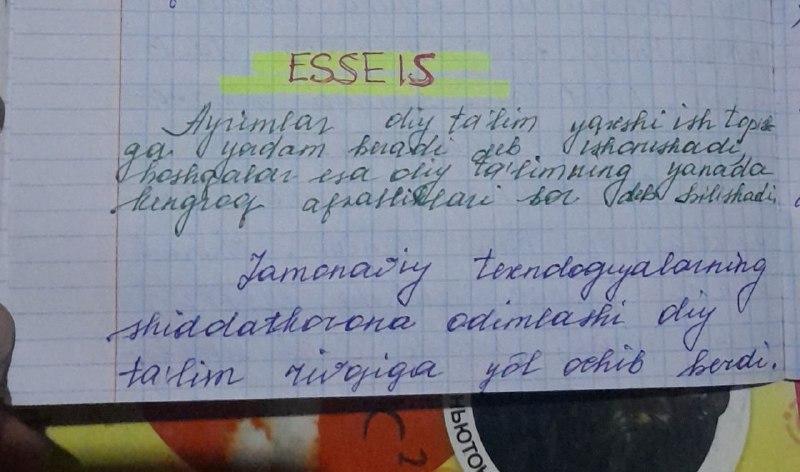 ESSE 15
Ayrimlar oliy ta'lim yaxshi ish topish-
ga yordam beradi deb ishonishadi
boshqalar esa oliy ta'limning yanada
kengroq afzalliklari bor deb bilishadi,
Zamonaviy texnologiyalarning
shiddatkorona odimlashi oliy
ta'lim rivojiga yo'l ochib berdi.
НЬЮТОН
C